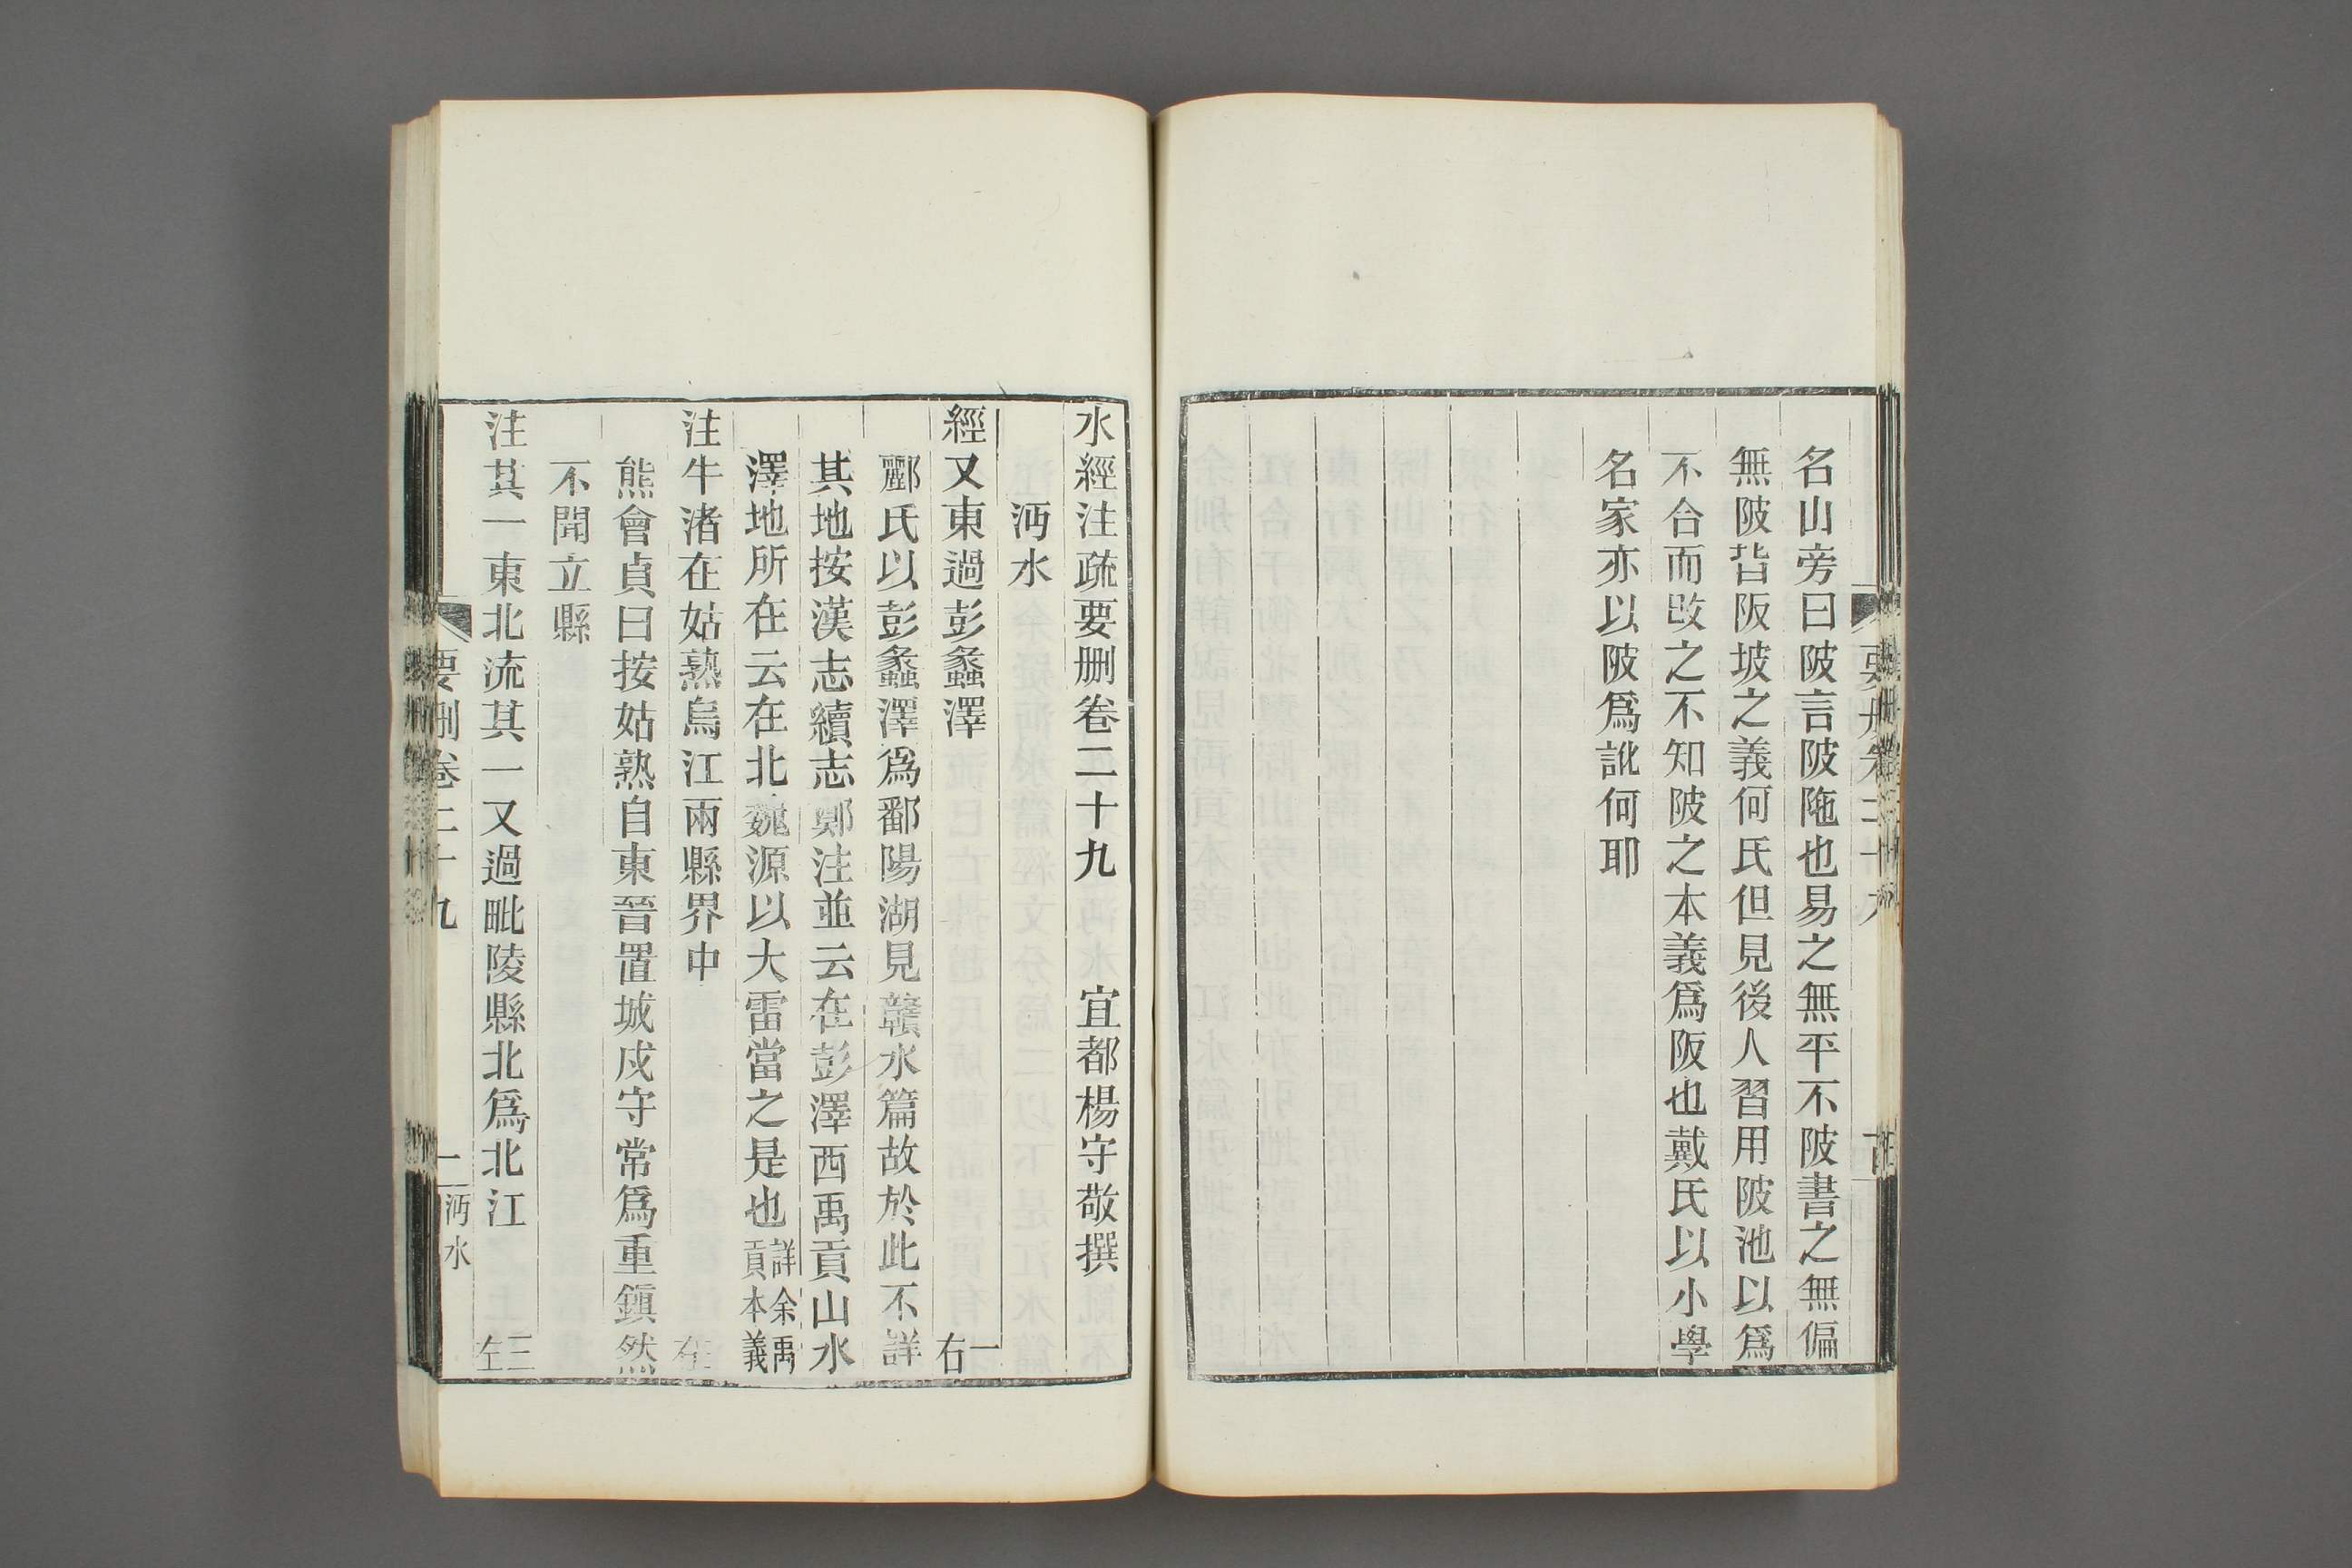 名山旁曰陂言陂陁也易之無平不陂書之無偏
無陂皆阪坡之義何氏但見後人習用陂池以爲
不合而改之不知陂之本義爲阪也戴氏以小學
名家亦以陂爲訛何耶
水經注疏要刪卷二十九　宜都楊守敬撰
沔水
經又東過彭蠡澤　一右
酈氏以彭蠡澤爲鄱陽湖見贛水篇故於此不詳
其地按漢志續志鄭注並云在彭澤西禹貢山水
澤地所在云在北魏源以大雷當之是也詳余禹貢本義
注牛渚在姑熟烏江兩縣界中　左
熊會貞曰按姑熟自東晉置城戍守常爲重鎮然
不聞立縣
注其一東北流其一又過毗陵縣北爲北江　三左
要刪卷二十九　一　沔水